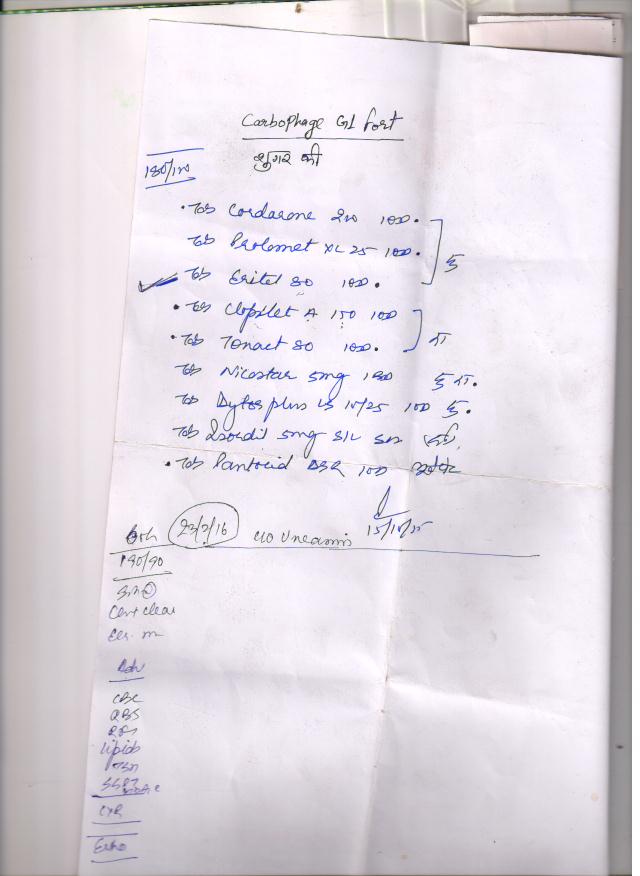 Carbophage G1 fort
शुगर की
180/100
Tab Cordarone 200 1OD
Tab Prolomet XL 25 1OD
Tab Eritel 80 1OD
Tab Clopilet A 150 1OD
Tab Tonact 80 1OD
Tab Nicostar 5mg
Tab Dytor plus LS 10/25 1OD
Tab Isordil 5mg S/L SOS
Tab Pantocid DSR 1OD
15/10/15
23/2/16 c/o Uneasiness
190/90
Chest clear
Adv
CBC
RBS
Lipids
CXR
Echo